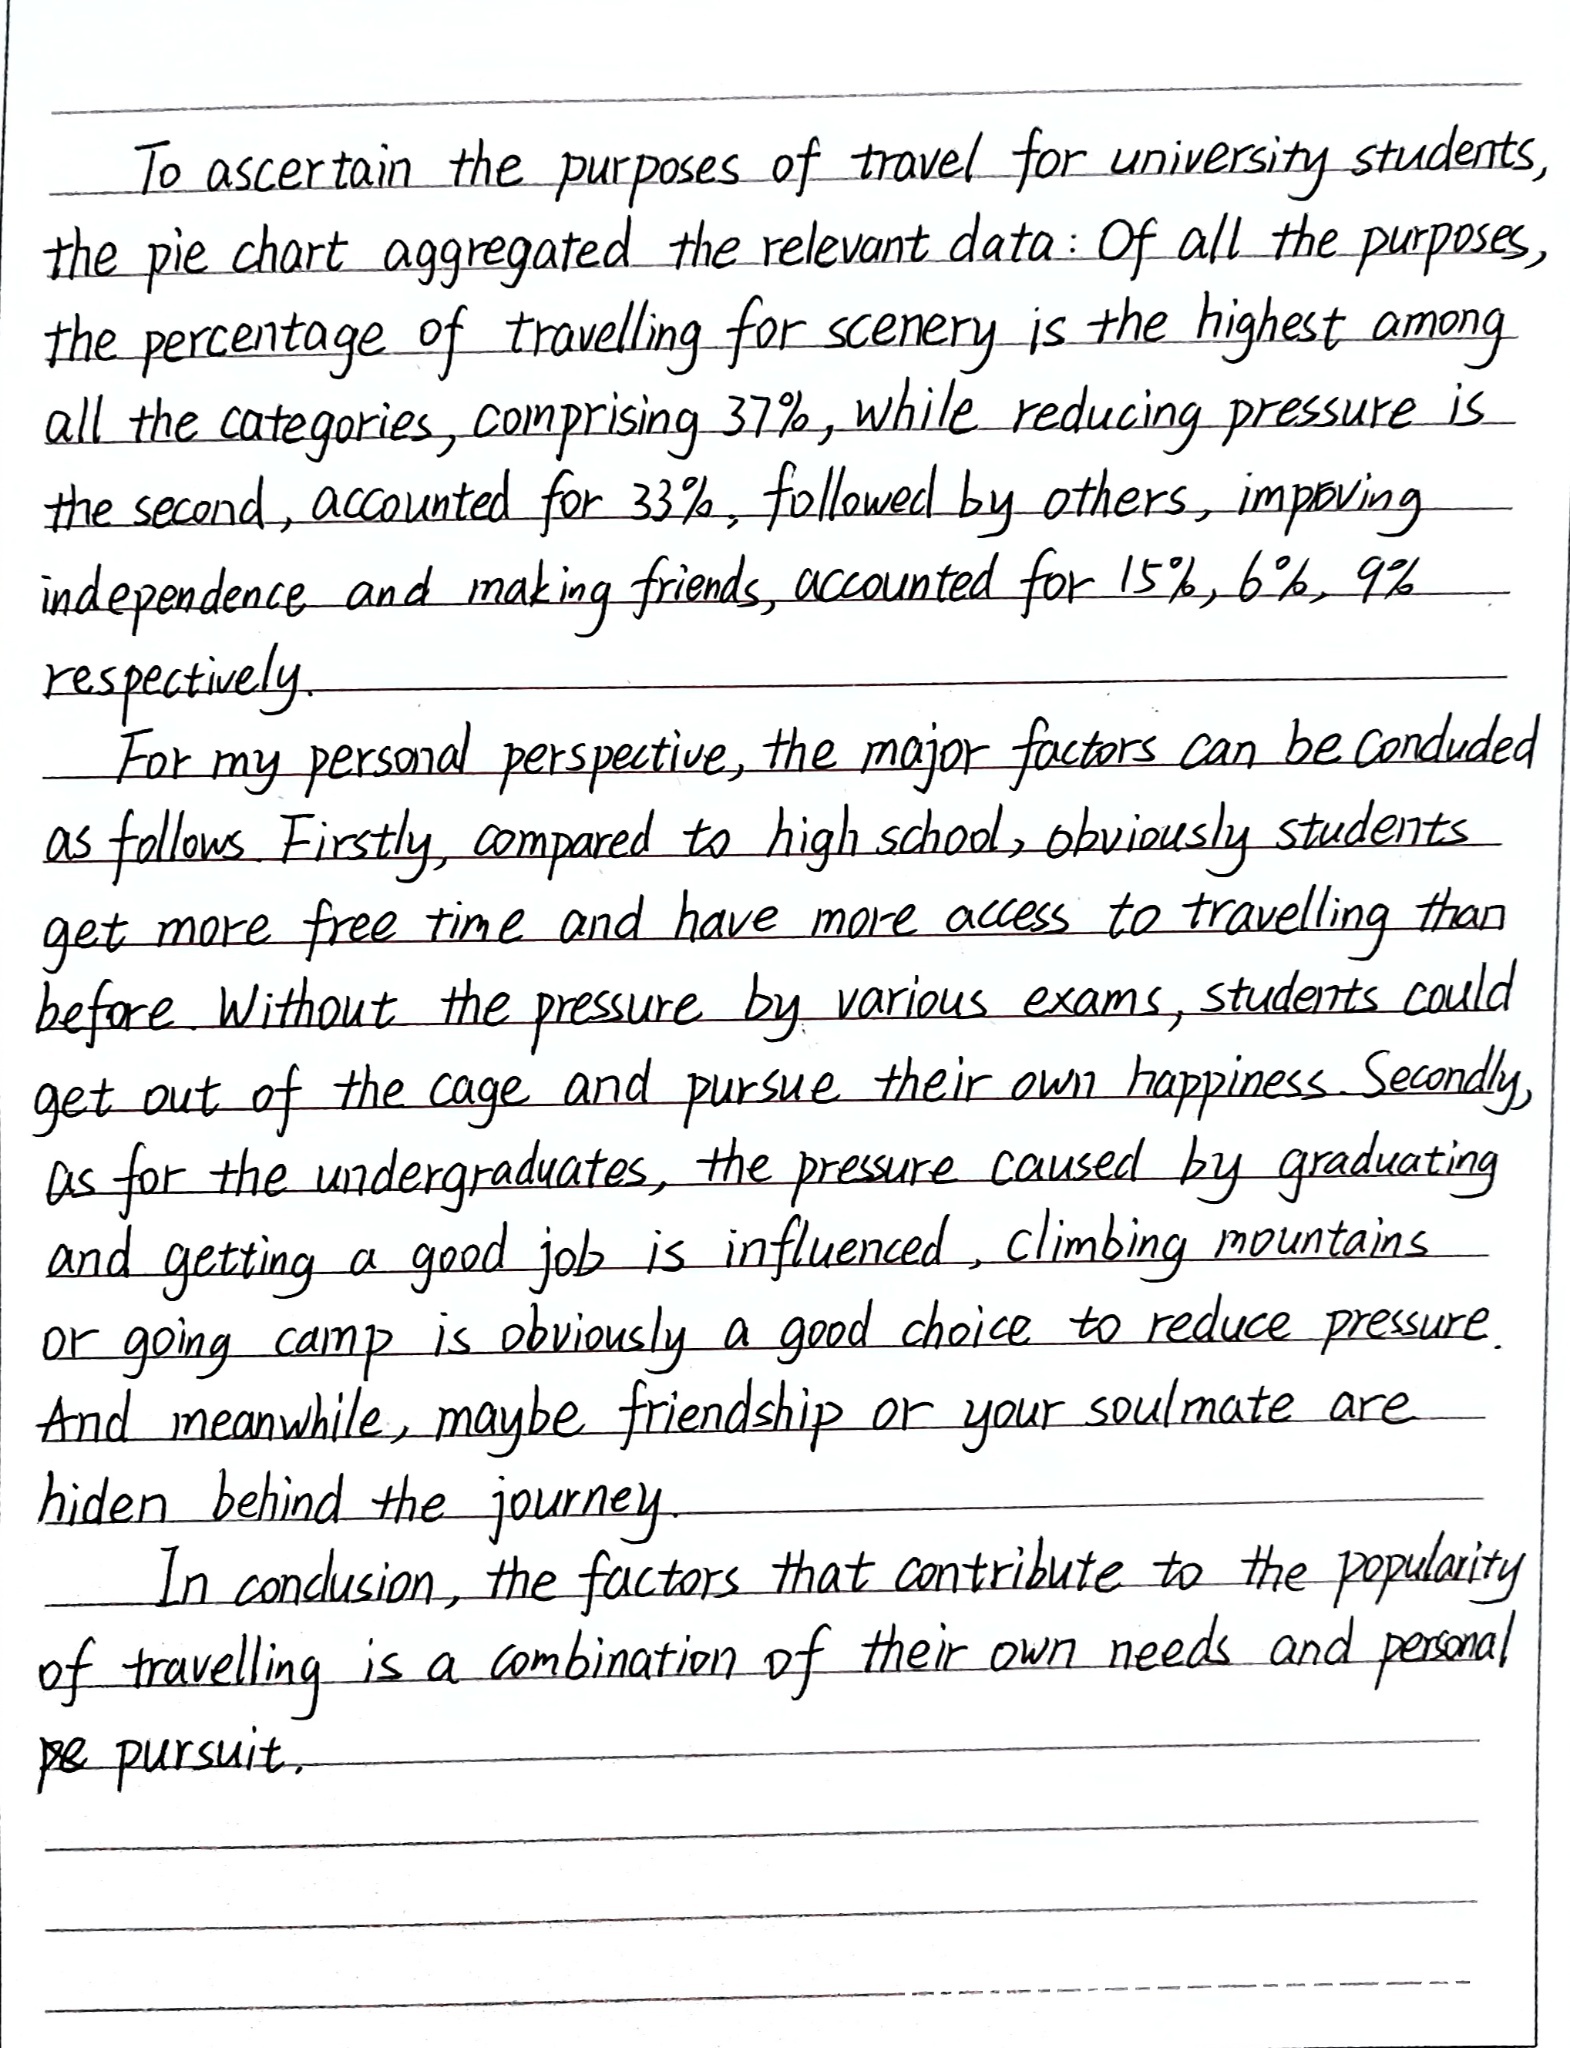 To ascertain the purposes of travel for university students,
the pie chart aggregated the relevant data: Of all the purposes,
the percentage of travelling for scenery is the highest among
all the categories, comprising 37%, while reducing pressure is
the second, accounted for 33%, followed by others, improving
independence and making friends, accounted for 15%, 6%, 9%
respectively.
For my personal perspective, the major factors can be concluded
as follows. Firstly, compared to high school, obviously students
get more free time and have more access to travelling than
before. Without the pressure by various exams, students could
get out of the cage and pursue their own happiness. Secondly,
as for the undergraduates, the pressure caused by graduating
and getting a good job is influenced, climbing mountains
or going camp is obviously a good choice to reduce pressure.
And meanwhile, maybe friendship or your soulmate are
hiden behind the journey.
In conclusion, the factors that contribute to the popularity
of travelling is a combination of their own needs and personal
pursuit.